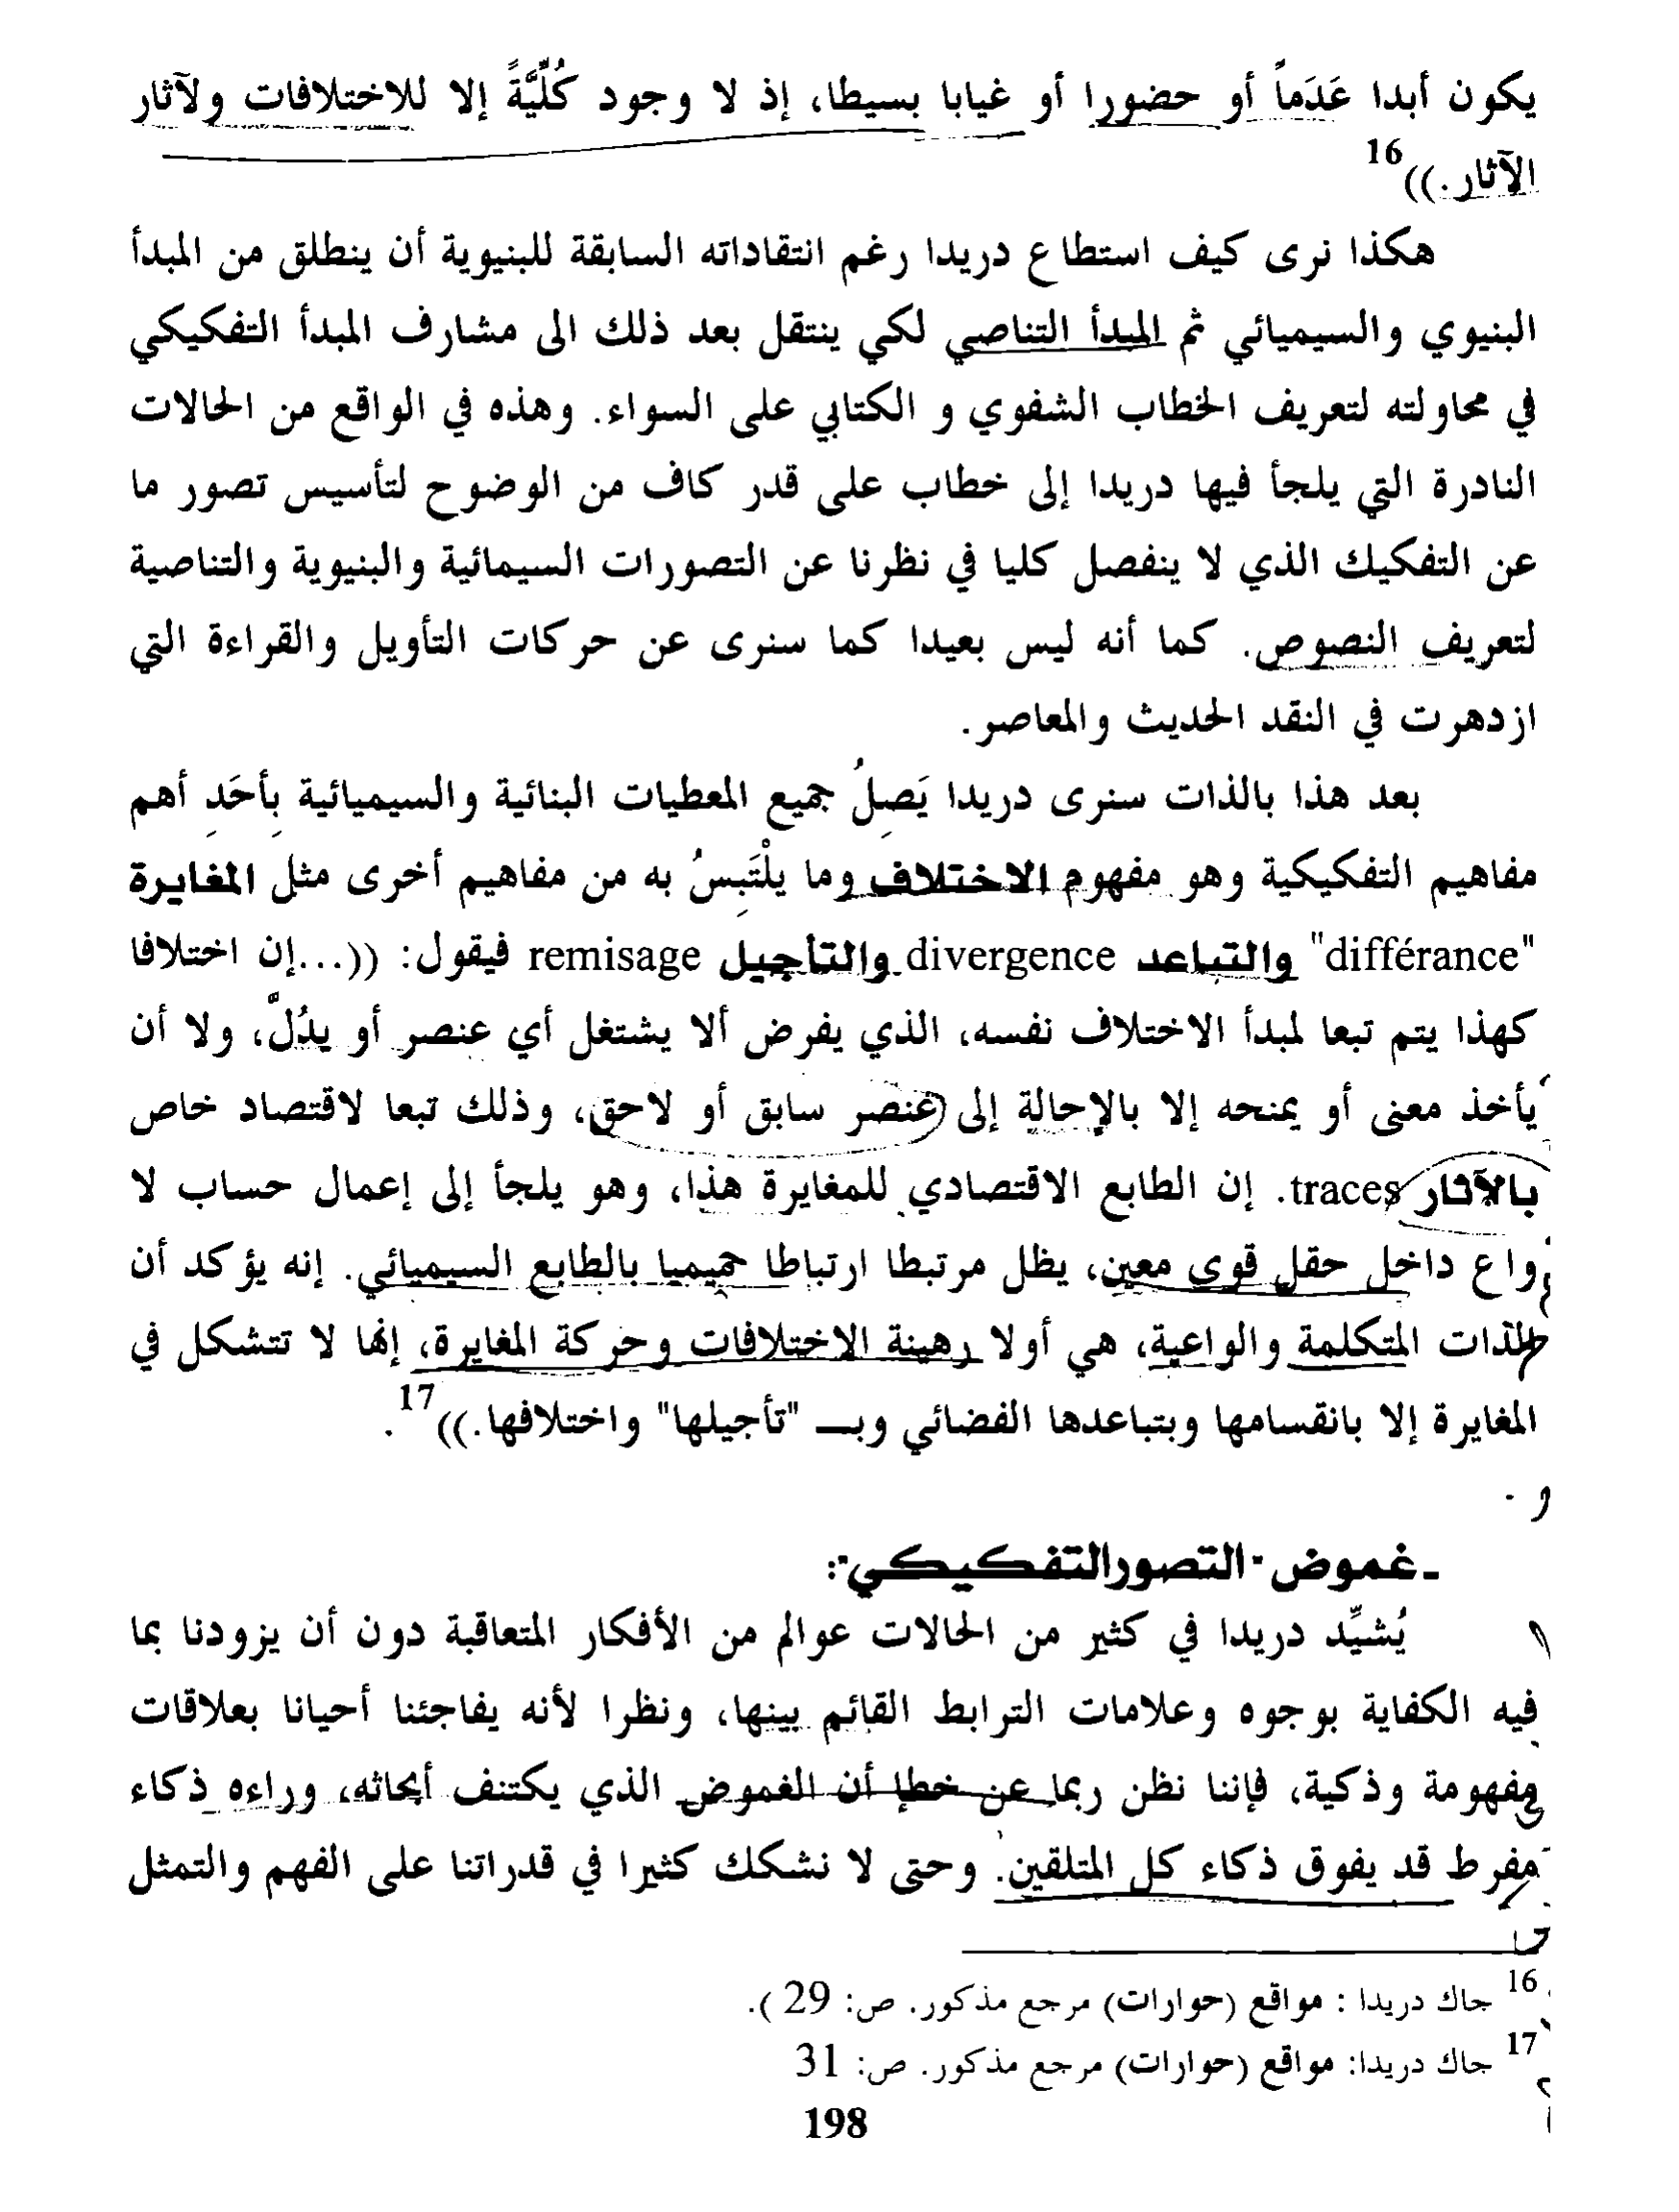 يكون أبدا عَدَماً أو حضورا أو غيابا بسيطا، إذ لا وجود كُلِّيَّةً إلا للاختلافات ولآثار
الآثار.))16
هكذا نرى كيف استطاع دريدا رغم انتقاداته السابقة للبنيوية أن ينطلق من المبدأ
البنيوي والسيميائي ثم المبدأ التناصي لكي ينتقل بعد ذلك الى مشارف المبدأ التفكيكي
في محاولته لتعريف الخطاب الشفوي و الكتابي على السواء. وهذه في الواقع من الحالات
النادرة التي يلجأ فيها دريدا إلى خطاب على قدر كاف من الوضوح لتأسيس تصور ما
عن التفكيك الذي لا ينفصل كليا في نظرنا عن التصورات السيمائية والبنيوية والتناصية
لتعريف النصوص. كما أنه ليس بعيدا كما سنرى عن حركات التأويل والقراءة التي
ازدهرت في النقد الحديث والمعاصر.
بعد هذا بالذات سنرى دريدا يَصِلُ جميع المعطيات البنائية والسيميائية بأحَدِ أهم
مفاهيم التفكيكية وهو مفهوم الاختلاف وما يلْتَبِسُ به من مفاهيم أخرى مثل المغايرة
"différance" والتباعد divergence والتأجيل remisage فيقول: ((...إن اختلافا
كهذا يتم تبعا لمبدأ الاختلاف نفسه، الذي يفرض ألا يشتغل أي عنصر أو يدُلَّ، ولا أن
يأخذ معنى أو يمنحه إلا بالإحالة إلى عنصر سابق أو لاحق، وذلك تبعا لاقتصاد خاص
بالآثار traces. إن الطابع الاقتصادي للمغايرة هذا، وهو يلجأ إلى إعمال حساب لا
واع داخل حقل قوى معين، يظل مرتبطا ارتباطا حميميا بالطابع السيميائي. إنه يؤكد أن
الذات المتكلمة والواعية، هي أولا رهينة الاختلافات وحركة المغايرة، إنها لا تتشكل في
المغايرة إلا بانقسامها وبتباعدها الفضائي وبـ "تأجيلها" واختلافها.))17.
- غموض "التصورالتفكيكي":
يُشيِّد دريدا في كثير من الحالات عوالم من الأفكار المتعاقبة دون أن يزودنا بما
فيه الكفاية بوجوه وعلامات الترابط القائم بينها، ونظرا لأنه يفاجئنا أحيانا بعلاقات
مفهومة وذكية، فإننا نظن ربما عن خطإ أن الغموض الذي يكتنف أبحاثه، وراءه ذكاء
مفرط قد يفوق ذكاء كل المتلقين. وحتى لا نشكك كثيرا في قدراتنا على الفهم والتمثل
16 جاك دريدا : مواقع (حوارات) مرجع مذكور. ص: 29 ).
17 جاك دريدا: مواقع (حوارات) مرجع مذكور. ص: 31
198